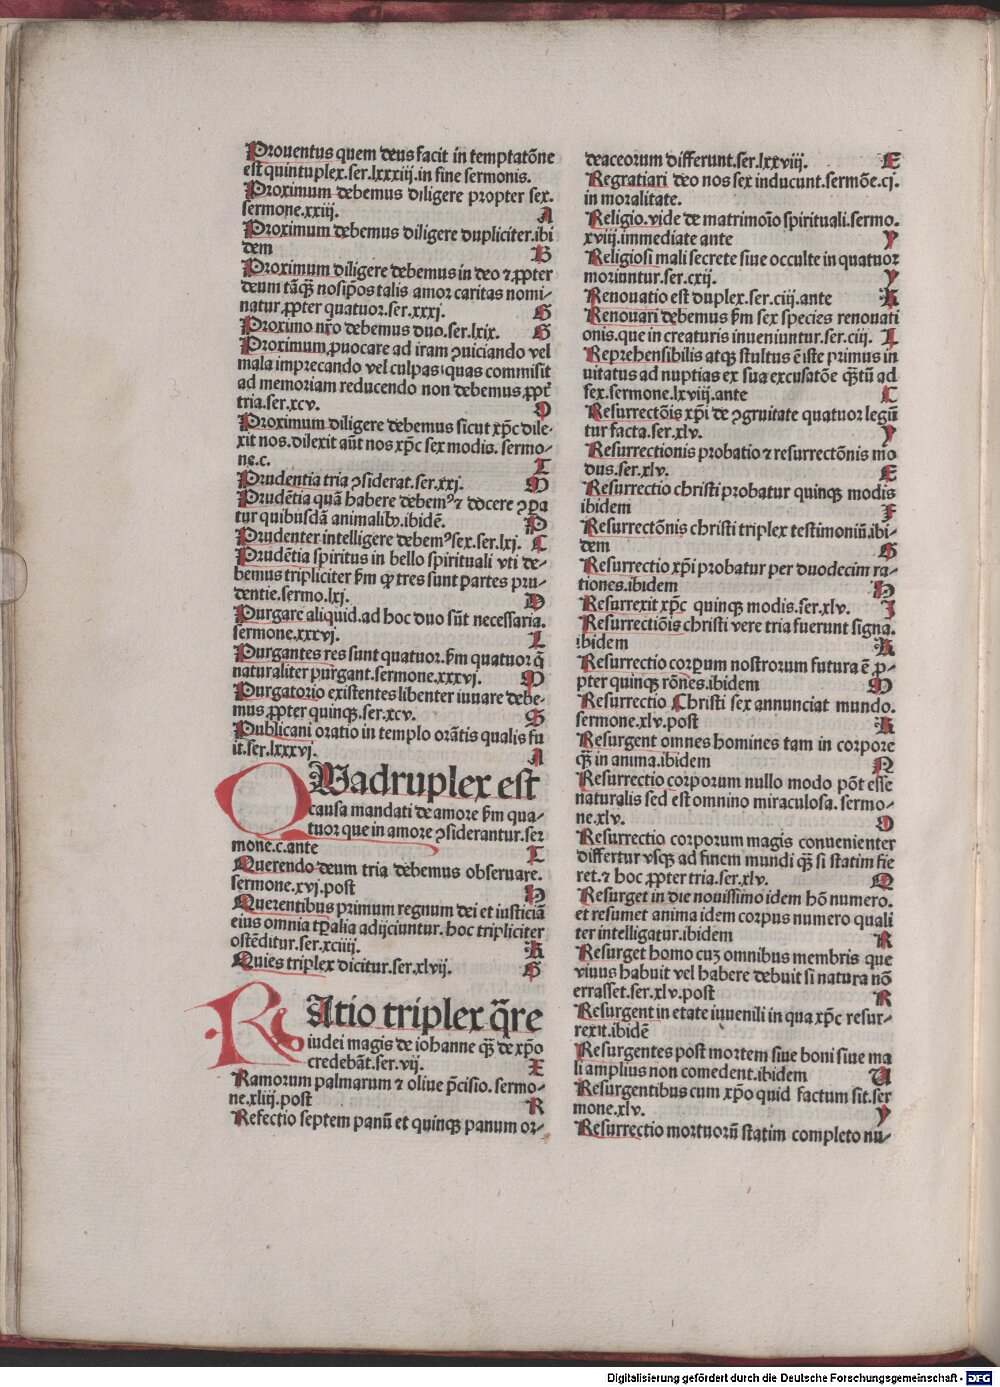 Prouentus quem deus facit in temptatōne
est quintuplex.ser.lxxxiij.in fine sermonis.
Proximum debemus diligere propter sex.
sermone.xxiij. A
Proximum debemus diligere dupliciter.ibi
dem B
Proximum diligere debemus in deo ⁊ ꝓpter
deum tāqꝫ nosip̄os talis amor caritas nomi-
natur.ꝓpter quatuor.ser.xxxj. G
Proximo nr̄o debemus duo.ser.lxix. G
Proximum.ꝓuocare ad iram ꝯuiciando vel
mala imprecando vel culpas quas commisit
ad memoriam reducendo non debemus ꝓpt̄
tria.ser.xcv. O
Proximum diligere debemus sicut xp̄c dile-
xit nos.dilexit aūt nos xp̄c sex modis. sermo-
ne.c. T
Prudentia tria ꝯsiderat.ser.xxj. M
Prudētia quā habere debemꝰ ⁊ docere ꝯpa
tur quibusdā animalibꝫ.ibidē. P
Prudenter intelligere debemꝰ sex.ser.lxj. C
Prudētia spiritus in bello spirituali vti de-
bemus tripliciter ẜm ꝙ tres sunt partes pru-
dentie.sermo.lxj. D
Purgare aliquid.ad hoc duo sūt necessaria.
sermone.xxxvj. L
Purgantes res sunt quatuor.ẜm quatuor q̄
naturaliter purgant.sermone.xxxvj. M
Purgatorio existentes libenter iuuare debe-
mus ꝓpter quinqꝫ.ser.xcv. G
Publicani oratio in templo orātis qualis fu
it.ser.lxxxvj. A
QUadruplex est
causa mandati de amore ẜm qua-
tuor que in amore ꝯsiderantur.ser
mone.c.ante T
Querendo deum tria debemus obseruare.
sermone.xvj.post H
Querentibus primum regnum dei et iusticiā
eius omnia tꝑalia adijciuntur. hoc tripliciter
ostēditur.ser.xciiij. K
Quies triplex dicitur.ser.xlvij. G
RAtio triplex q̄re
iudei magis de iohanne qꝫ̄ de xp̄o
credebāt.ser.vij. X
Ramorum palmarum ⁊ oliue p̄cisio. sermo-
ne.xliij.post R
Refectio septem panū et quinqꝫ panum or-
deaceorum differunt.ser.lxxviij. E
Regratiari deo nos sex inducunt.sermōe.cj.
in moralitate.
Religio.vide de matrimōio spirituali.sermo.
xviij.immediate ante Y
Religiosi mali secrete siue occulte in quatuor
moriuntur.ser.cxij. Y
Renouatio est duplex.ser.ciij.ante K
Renouari debemus ẜm sex species renouati
onis.que in creaturis inueniuntur.ser.ciij. L
Reprehensibilis atqꝫ stultus ē iste primus in
uitatus ad nuptias ex sua excusatōe qꝫ̄tū ad
sex.sermone.lxviij.ante C
Resurrectōis xp̄i de ꝯgruitate quatuor legū
tur facta.ser.xlv. Y
Resurrectionis probatio ⁊ resurrectōnis mo
dus.ser.xlv. E
Resurrectio christi probatur quinqꝫ modis
ibidem F
Resurrectōnis christi triplex testimoniū.ibi-
dem G
Resurrectio xp̄i probatur per duodecim ra-
tiones.ibidem H
Resurrexit xp̄c quinqꝫ modis.ser.xlv. J
Resurrectiōis christi vere tria fuerunt signa.
ibidem K
Resurrectio corpum nostrorum futura ē ꝓ-
pter quinqꝫ rōnes.ibidem M
Resurrectio Christi sex annunciat mundo.
sermone.xlv.post K
Resurgent omnes homines tam in corpore
qꝫ̄ in anima.ibidem N
Resurrectio corporum nullo modo pōt esse
naturalis sed est omnino miraculosa. sermo-
ne.xlv. O
Resurrectio corporum magis conuenienter
differtur vsqꝫ ad finem mundi qꝫ̄ si statim fie
ret.⁊ hoc ꝓpter tria.ser.xlv. Q
Resurget in die nouissimo idem hō numero.
et resumet anima idem corpus numero quali
ter intelligatur.ibidem R
Resurget homo cuꝫ omnibus membris que
viuus habuit vel habere debuit si natura nō
errasset.ser.xlv.post R
Resurgent in etate iuuenili in qua xp̄c resur-
rexit.ibidē
Resurgentes post mortem siue boni siue ma
li amplius non comedent.ibidem U
Resurgentibus cum xp̄o quid factum sit.ser
mone.xlv. Y
Resurrectio mortuorū statim completo nu-
Digitalisierung gefördert durch die Deutsche Forschungsgemeinschaft - DFG